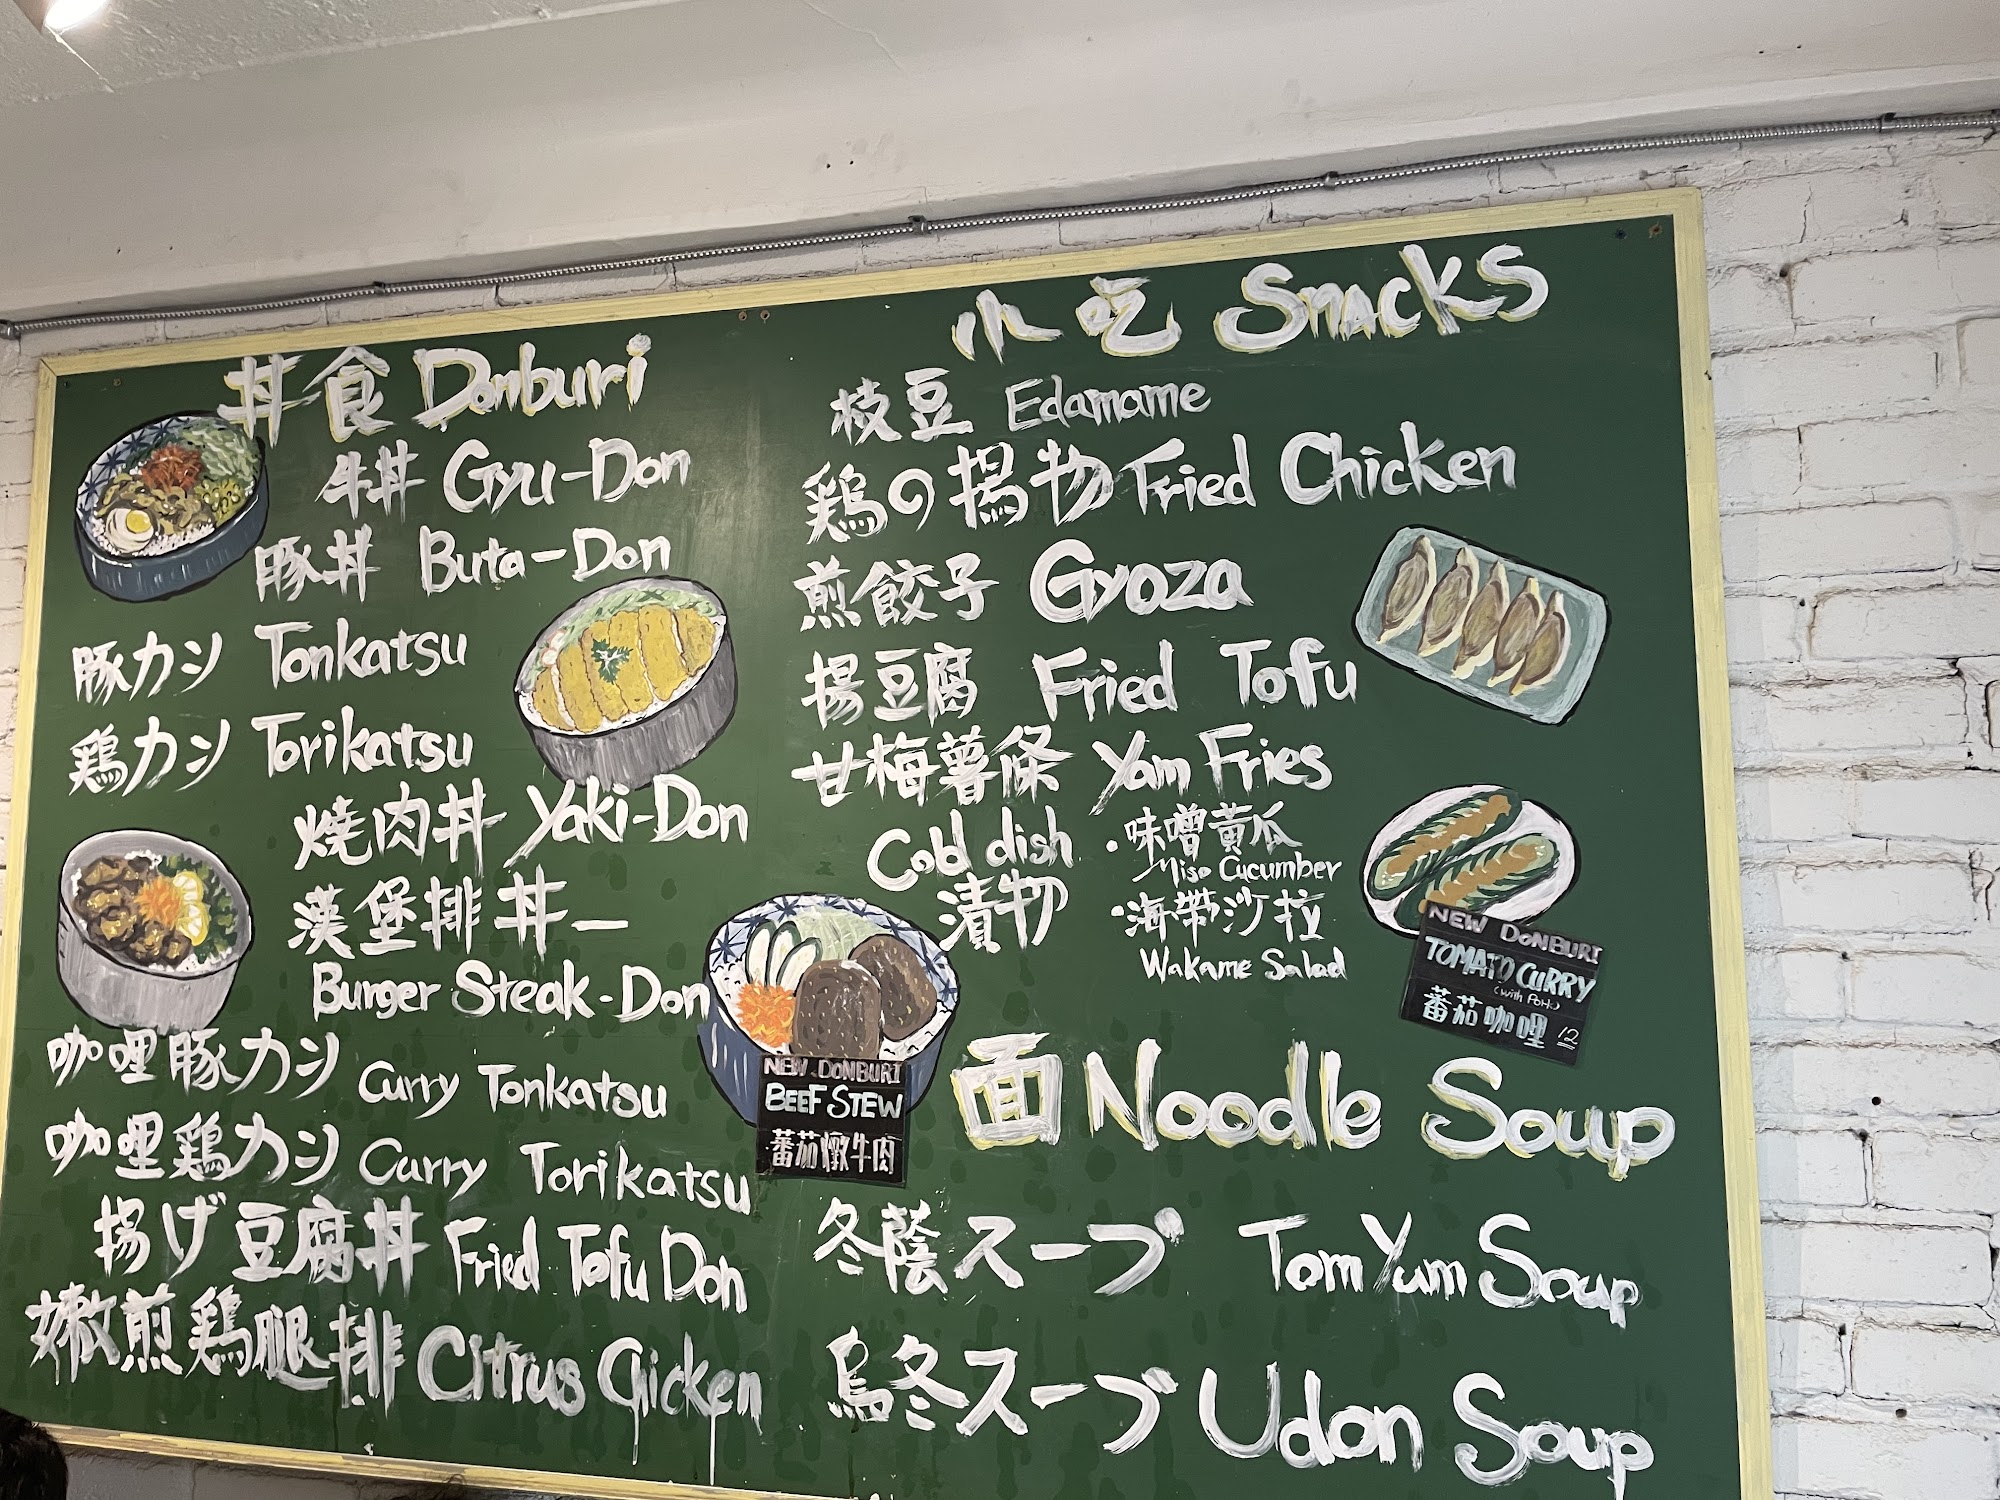 丼食 Donburi
牛丼 Gyu-Don
豚丼 Buta-Don
豚カシ Tonkatsu
鶏カシ Torikatsu
焼肉丼 Yaki-Don
漢堡排丼-
Burger Steak-Don
咖哩豚カシ Curry Tonkatsu
咖哩鶏カシ Curry Torikatsu
揚げ豆腐丼 Fried Tofu Don
嫩煎鶏腿排 Citrus Chicken
NEW DONBURI
BEEF STEW
蕃茄燉牛肉
小吃 Snacks
枝豆 Edamame
鶏の揚物 Fried Chicken
煎餃子 Gyoza
揚豆腐 Fried Tofu
甘梅薯條 Yam Fries
Cold dish
漬物
・味噌黄瓜
Miso Cucumber
・海帶沙拉
Wakame Salad
NEW DONBURI
TOMATO CURRY
(with Pork)
蕃茄咖哩 12
面 Noodle Soup
冬蔭スープ Tom Yum Soup
烏冬スープ Udon Soup